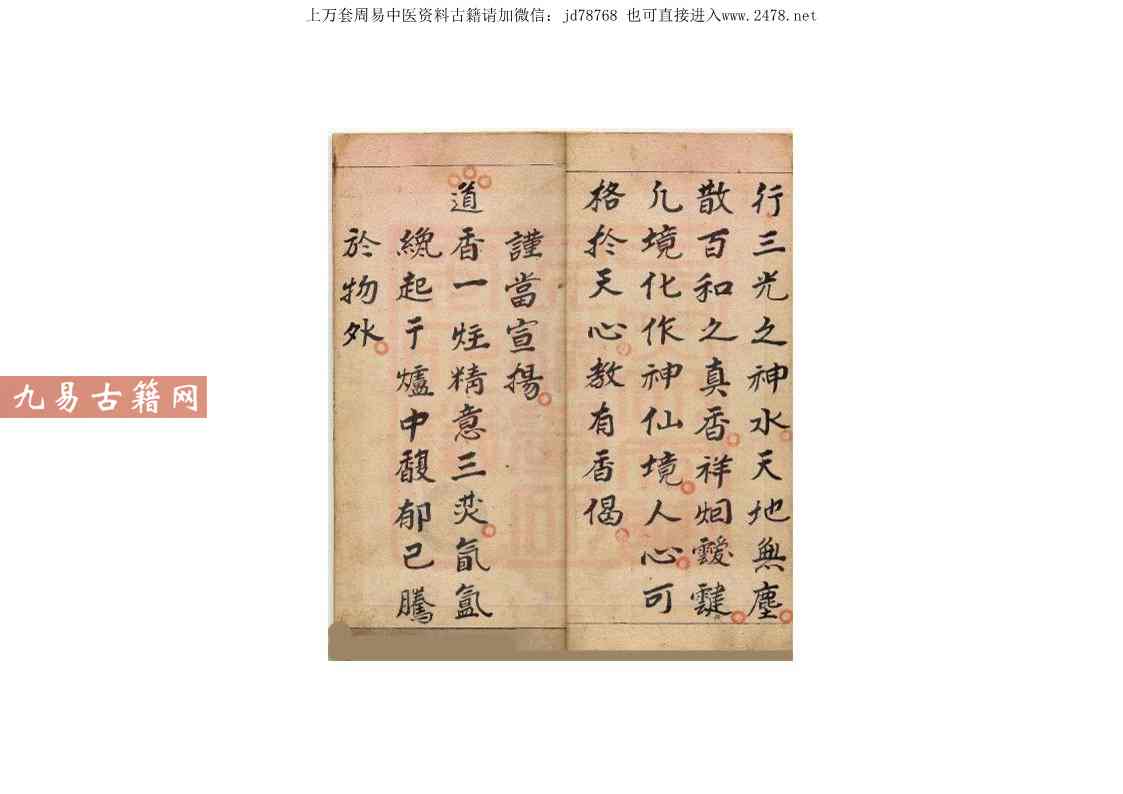 上万套周易中医资料古籍请加微信：jd78768 也可直接进入www.2478.net
行三光之神水天地無塵
散百和之真香祥烟靉靆
凡境化作神仙境人心可
格於天心教有香偈
謹當宣揚
道香一炷精意三焚氤氳
纔起于爐中馥郁已騰
於物外
九易古籍网